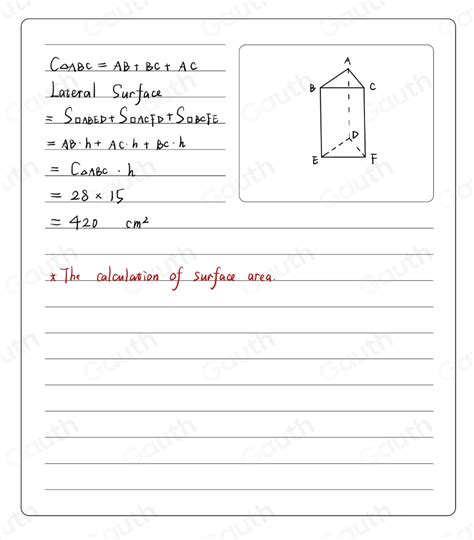 C△ABC = AB + BC + AC
Lateral Surface
= S□ABED + S□ACFD + S□BCFE
= AB·h + AC·h + BC·h
= C△ABC · h
= 28 × 15
= 420 cm²
* The calculation of surface area.
A
B
C
D
E
F
Gauth